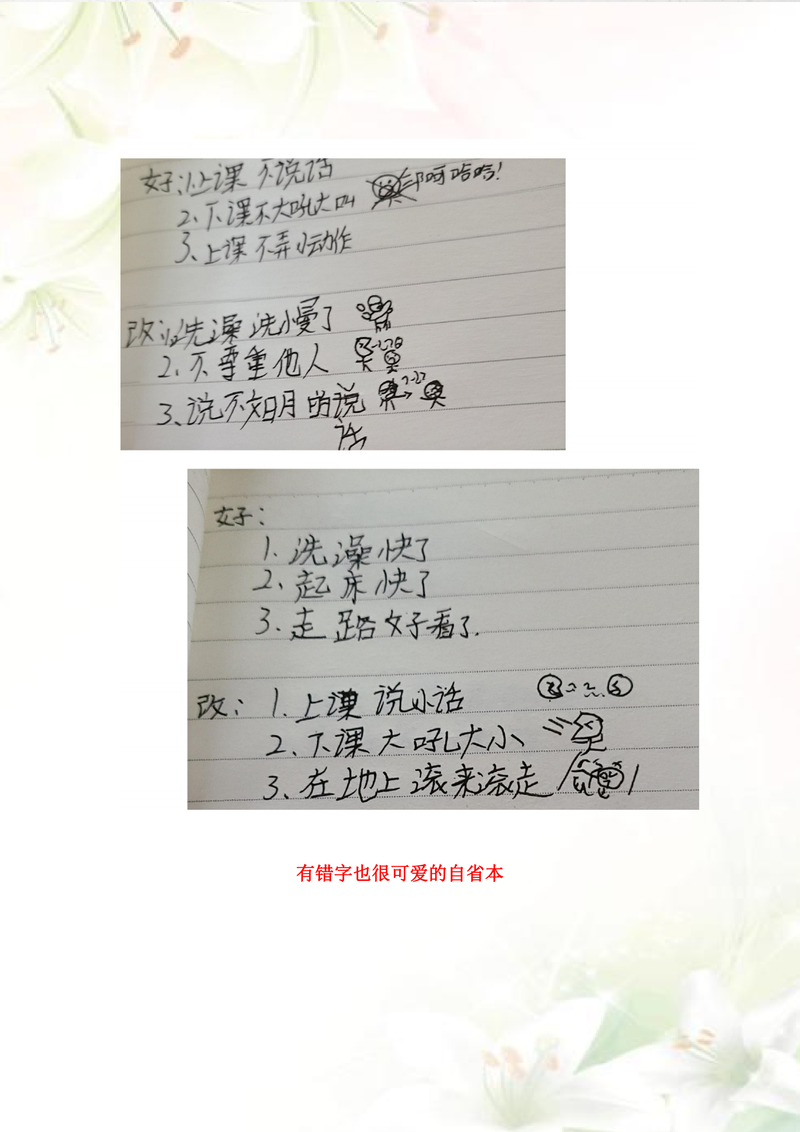 好：1.上课不说话
2.下课不大吼大叫 呵哈哈！
3.上课不弄小动作
改：1.洗澡洗慢了
2.不尊重他人
3.说不文明的说
话
好：
1.洗澡快了
2.起床快了
3.走路好看了.
改：1.上课说小话
2.下课大吼大小
3.在地上滚来滚走
有错字也很可爱的自省本